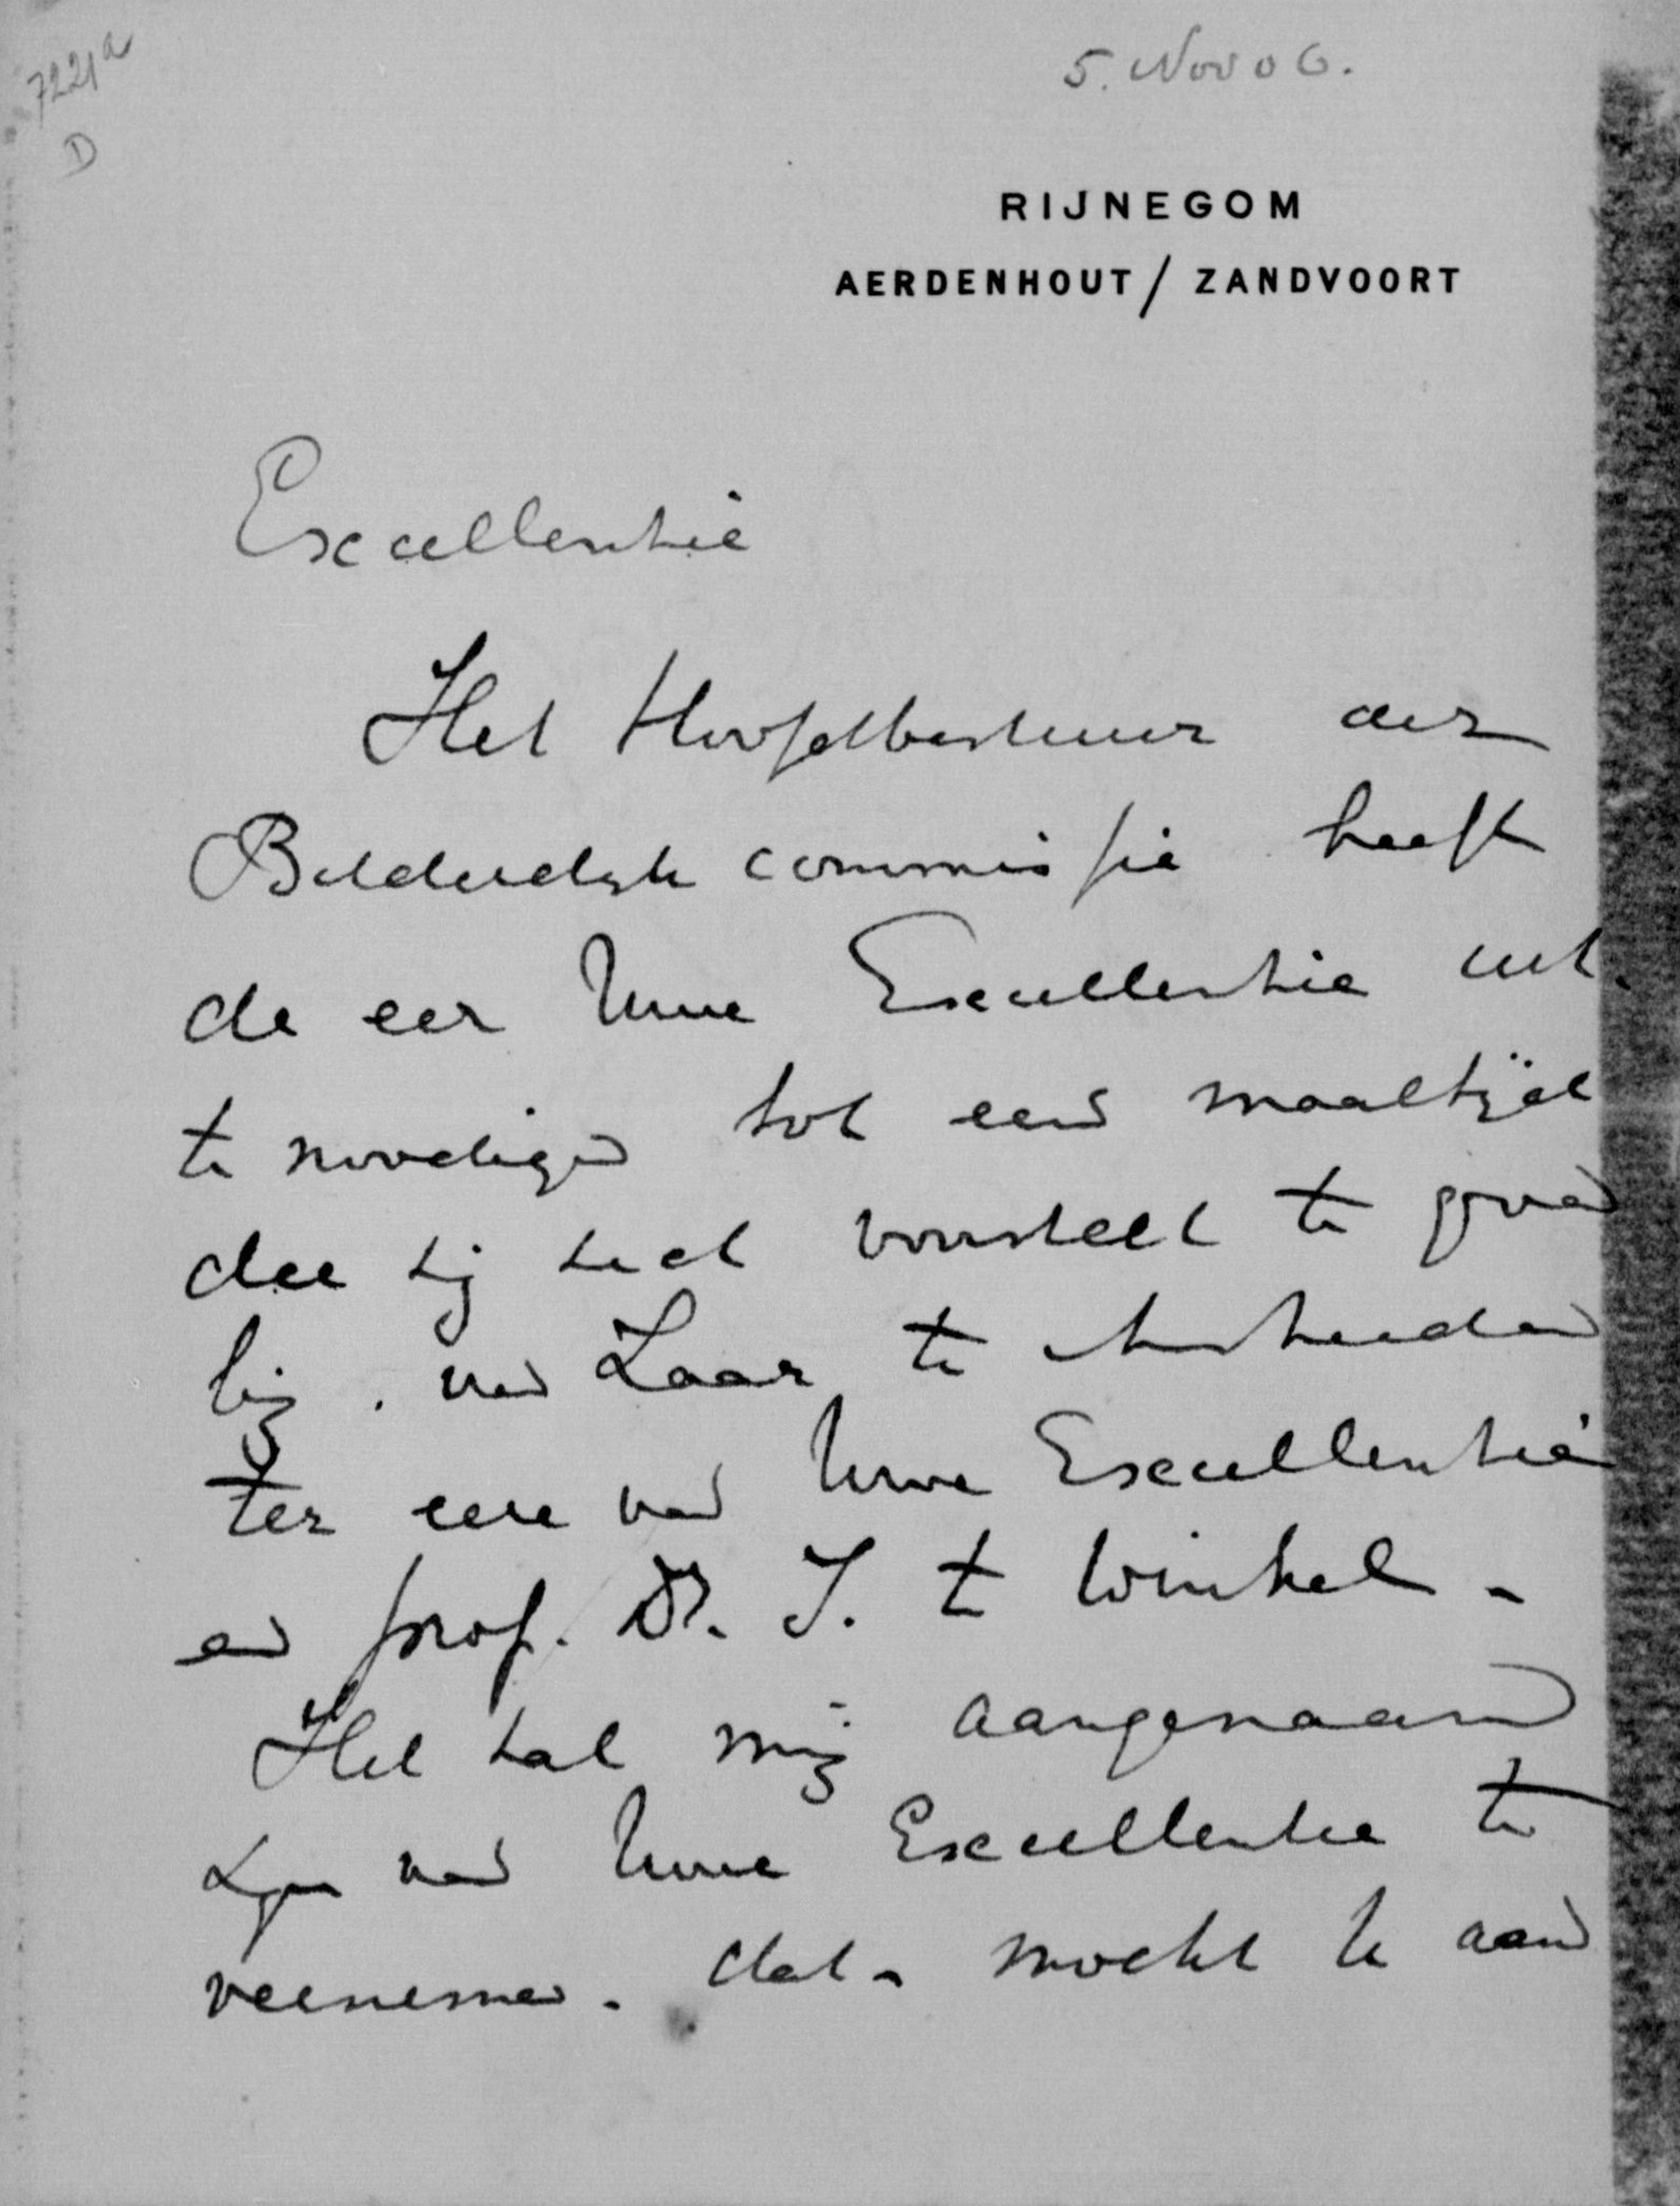 7221a
D
5. Nov 06.
RIJNEGOM
AERDENHOUT / ZANDVOORT
Excellentie
Het Hoofdbestuur der
Bilderdijk commissie heeft
de eer Uwe Excellentie uit
te noodigen tot een maaltijd
die zij zich voorstelt te
bij van Laar te
ter eere van Uwe Excellentie
en prof. Dr. J. te Winkel -
Het zal mij aangenaam
zijn van Uwe Excellentie te
vernemen. dat - mocht U aan